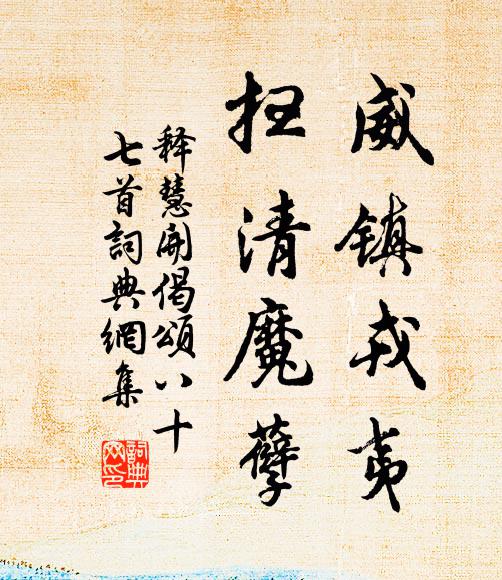 威镇戎夷
扫清魔孽
释慧開偈頌八十
七首詞典網集
詞典網印